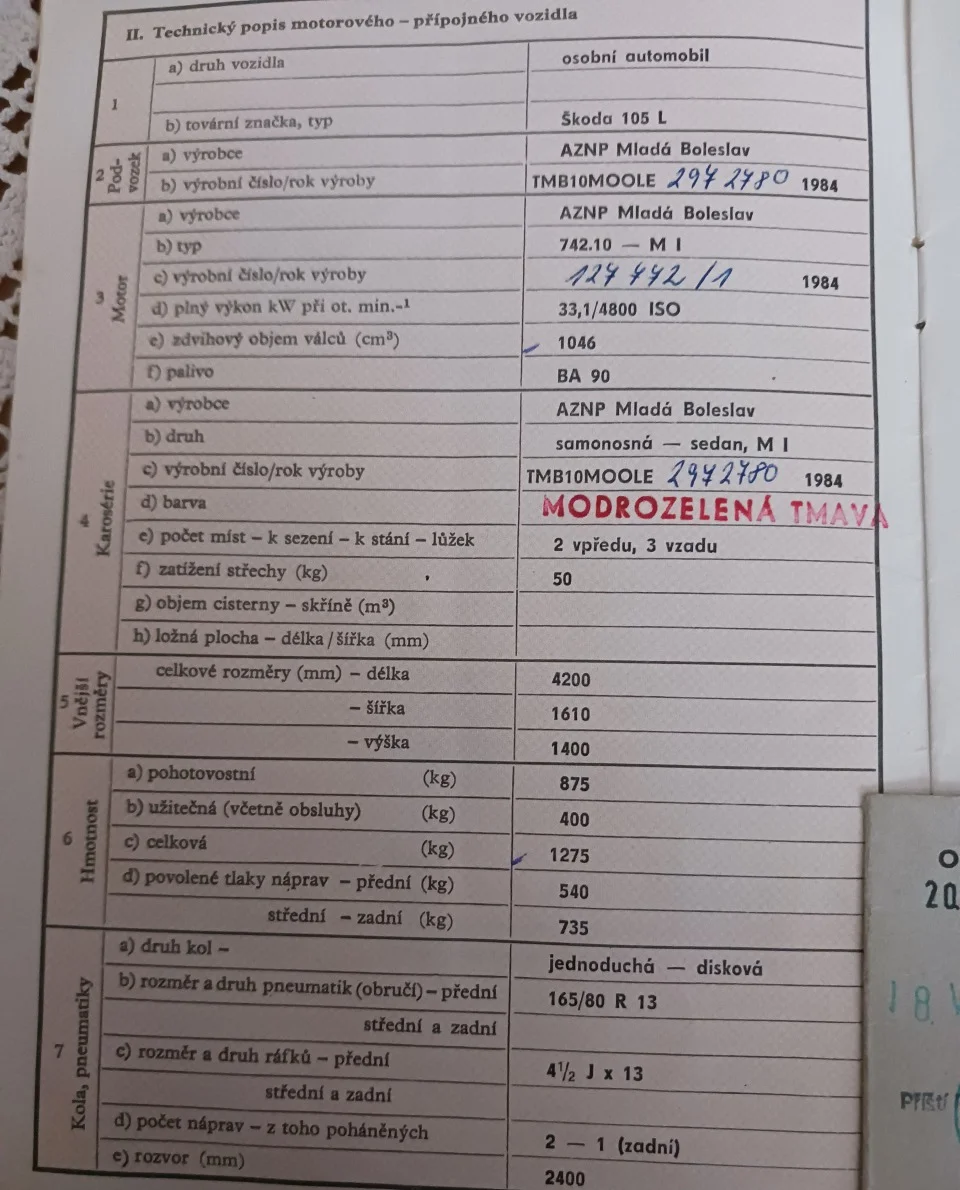 II. Technický popis motorového – přípojného vozidla
1
a) druh vozidla osobní automobil
b) tovární značka, typ Škoda 105 L
2 Pod-
vozek
a) výrobce AZNP Mladá Boleslav
b) výrobní číslo/rok výroby TMB10MOOLE 2972780 1984
3 Motor
a) výrobce AZNP Mladá Boleslav
b) typ 742.10 — M I
c) výrobní číslo/rok výroby 1984
d) plný výkon kW při ot. min.-¹ 33,1/4800 ISO
e) zdvihový objem válců (cm³) 1046
f) palivo BA 90
4 Karosérie
a) výrobce AZNP Mladá Boleslav
b) druh samonosná — sedan, M I
c) výrobní číslo/rok výroby TMB10MOOLE 2972780 1984
d) barva MODROZELENÁ TMAVÁ
e) počet míst – k sezení – k stání – lůžek 2 vpředu, 3 vzadu
f) zatížení střechy (kg) 50
g) objem cisterny – skříně (m³)
h) ložná plocha – délka/šířka (mm)
5 Vnější
rozměry
celkové rozměry (mm) – délka 4200
– šířka 1610
– výška 1400
6 Hmotnost
a) pohotovostní (kg) 875
b) užitečná (včetně obsluhy) (kg) 400
c) celková (kg) 1275
d) povolené tlaky náprav – přední (kg) 540
střední – zadní (kg) 735
7 Kola, pneumatiky
a) druh kol – jednoduchá — disková
b) rozměr a druh pneumatik (obručí) – přední 165/80 R 13
střední a zadní
c) rozměr a druh ráfků – přední 4½ J x 13
střední a zadní
d) počet náprav – z toho poháněných 2 — 1 (zadní)
e) rozvor (mm) 2400
18. V
Příští